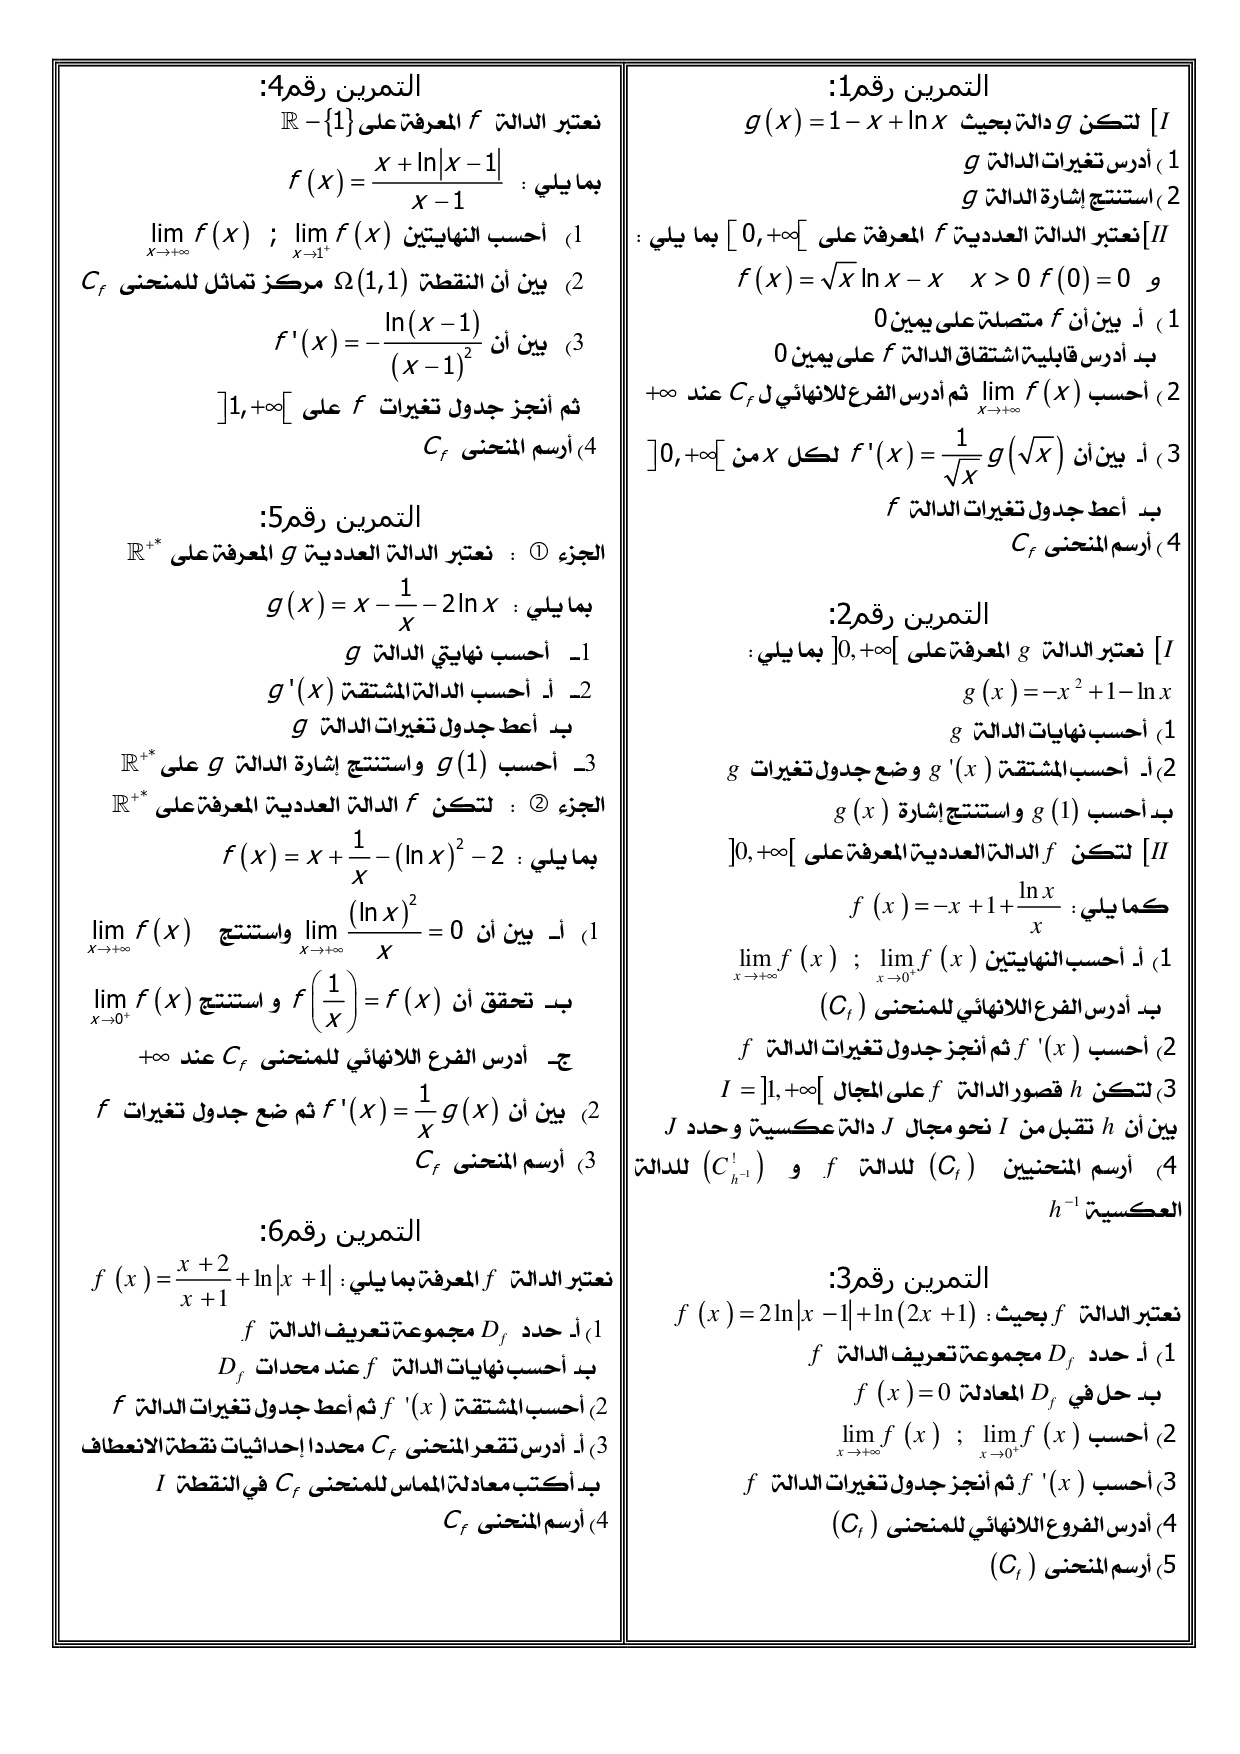 التمرين رقم1:
I] لتكن g دالة بحيث g(x) = 1 − x + ln x
1) أدرس تغيرات الدالة g
2) استنتج إشارة الدالة g
II] نعتبر الدالة العددية f المعرفة على [0,+∞[ بما يلي :
f(x) = √x ln x − x   x > 0 و f(0) = 0
1) أـ بين أن f متصلة على يمين 0
بـ أدرس قابلية اشتقاق الدالة f على يمين 0
2) أحسب lim_{x→+∞} f(x) ثم أدرس الفرع للانهائي ل C_f عند +∞
3) أـ بين أن f'(x) = (1/√x) g(√x) لكل x من ]0,+∞[
بـ أعط جدول تغيرات الدالة f
4) أرسم المنحنى C_f
التمرين رقم2:
I] نعتبر الدالة g المعرفة على ]0,+∞[ بما يلي :
g(x) = −x² + 1 − ln x
1) أحسب نهايات الدالة g
2) أـ أحسب المشتقة g'(x) وضع جدول تغيرات g
بـ أحسب g(1) و استنتج إشارة g(x)
II] لتكن f الدالة العددية المعرفة على ]0,+∞[
كما يلي : f(x) = −x + 1 + (ln x)/x
1) أـ أحسب النهايتين lim_{x→0⁺} f(x) ; lim_{x→+∞} f(x)
بـ أدرس الفرع اللانهائي للمنحنى (C_f)
2) أحسب f'(x) ثم أنجز جدول تغيرات الدالة f
3) لتكن h قصور الدالة f على المجال I = ]1,+∞[
بين أن h تقبل من I نحو مجال J دالة عكسية و حدد J
4) أرسم المنحنيين (C_f) للدالة f و (C^!_{h⁻¹}) للدالة
العكسية h⁻¹
التمرين رقم3:
نعتبر الدالة f بحيث : f(x) = 2ln|x − 1| + ln(2x + 1)
1) أـ حدد D_f مجموعة تعريف الدالة f
بـ حل في D_f المعادلة f(x) = 0
2) أحسب lim_{x→0⁺} f(x) ; lim_{x→+∞} f(x)
3) أحسب f'(x) ثم أنجز جدول تغيرات الدالة f
4) أدرس الفروع اللانهائي للمنحنى (C_f)
5) أرسم المنحنى (C_f)
التمرين رقم4:
نعتبر الدالة f المعرفة على ℝ − {1}
بما يلي : f(x) = (x + ln|x − 1|)/(x − 1)
1) أحسب النهايتين lim_{x→1⁺} f(x) ; lim_{x→+∞} f(x)
2) بين أن النقطة Ω(1,1) مركز تماثل للمنحنى C_f
3) بين أن f'(x) = −ln(x − 1)/(x − 1)²
ثم أنجز جدول تغيرات f على ]1,+∞[
4) أرسم المنحنى C_f
التمرين رقم5:
الجزء ① : نعتبر الدالة العددية g المعرفة على ℝ⁺*
بما يلي : g(x) = x − 1/x − 2ln x
1ـ أحسب نهايتي الدالة g
2ـ أـ أحسب الدالة المشتقة g'(x)
بـ أعط جدول تغيرات الدالة g
3ـ أحسب g(1) و استنتج إشارة الدالة g على ℝ⁺*
الجزء ② : لتكن f الدالة العددية المعرفة على ℝ⁺*
بما يلي : f(x) = x + 1/x − (ln x)² − 2
1) أـ بين أن lim_{x→+∞} (ln x)²/x = 0 واستنتج lim_{x→+∞} f(x)
بـ تحقق أن f(1/x) = f(x) و استنتج lim_{x→0⁺} f(x)
جـ أدرس الفرع اللانهائي للمنحنى C_f عند +∞
2) بين أن f'(x) = (1/x) g(x) ثم ضع جدول تغيرات f
3) أرسم المنحنى C_f
التمرين رقم6:
نعتبر الدالة f المعرفة بما يلي : f(x) = (x + 2)/(x + 1) + ln|x + 1|
1) أـ حدد D_f مجموعة تعريف الدالة f
بـ أحسب نهايات الدالة f عند محدات D_f
2) أحسب المشتقة f'(x) ثم أعط جدول تغيرات الدالة f
3) أـ أدرس تقعر المنحنى C_f محددا إحداثيات نقطة الانعطاف
بـ أكتب معادلة المماس للمنحنى C_f في النقطة I
4) أرسم المنحنى C_f